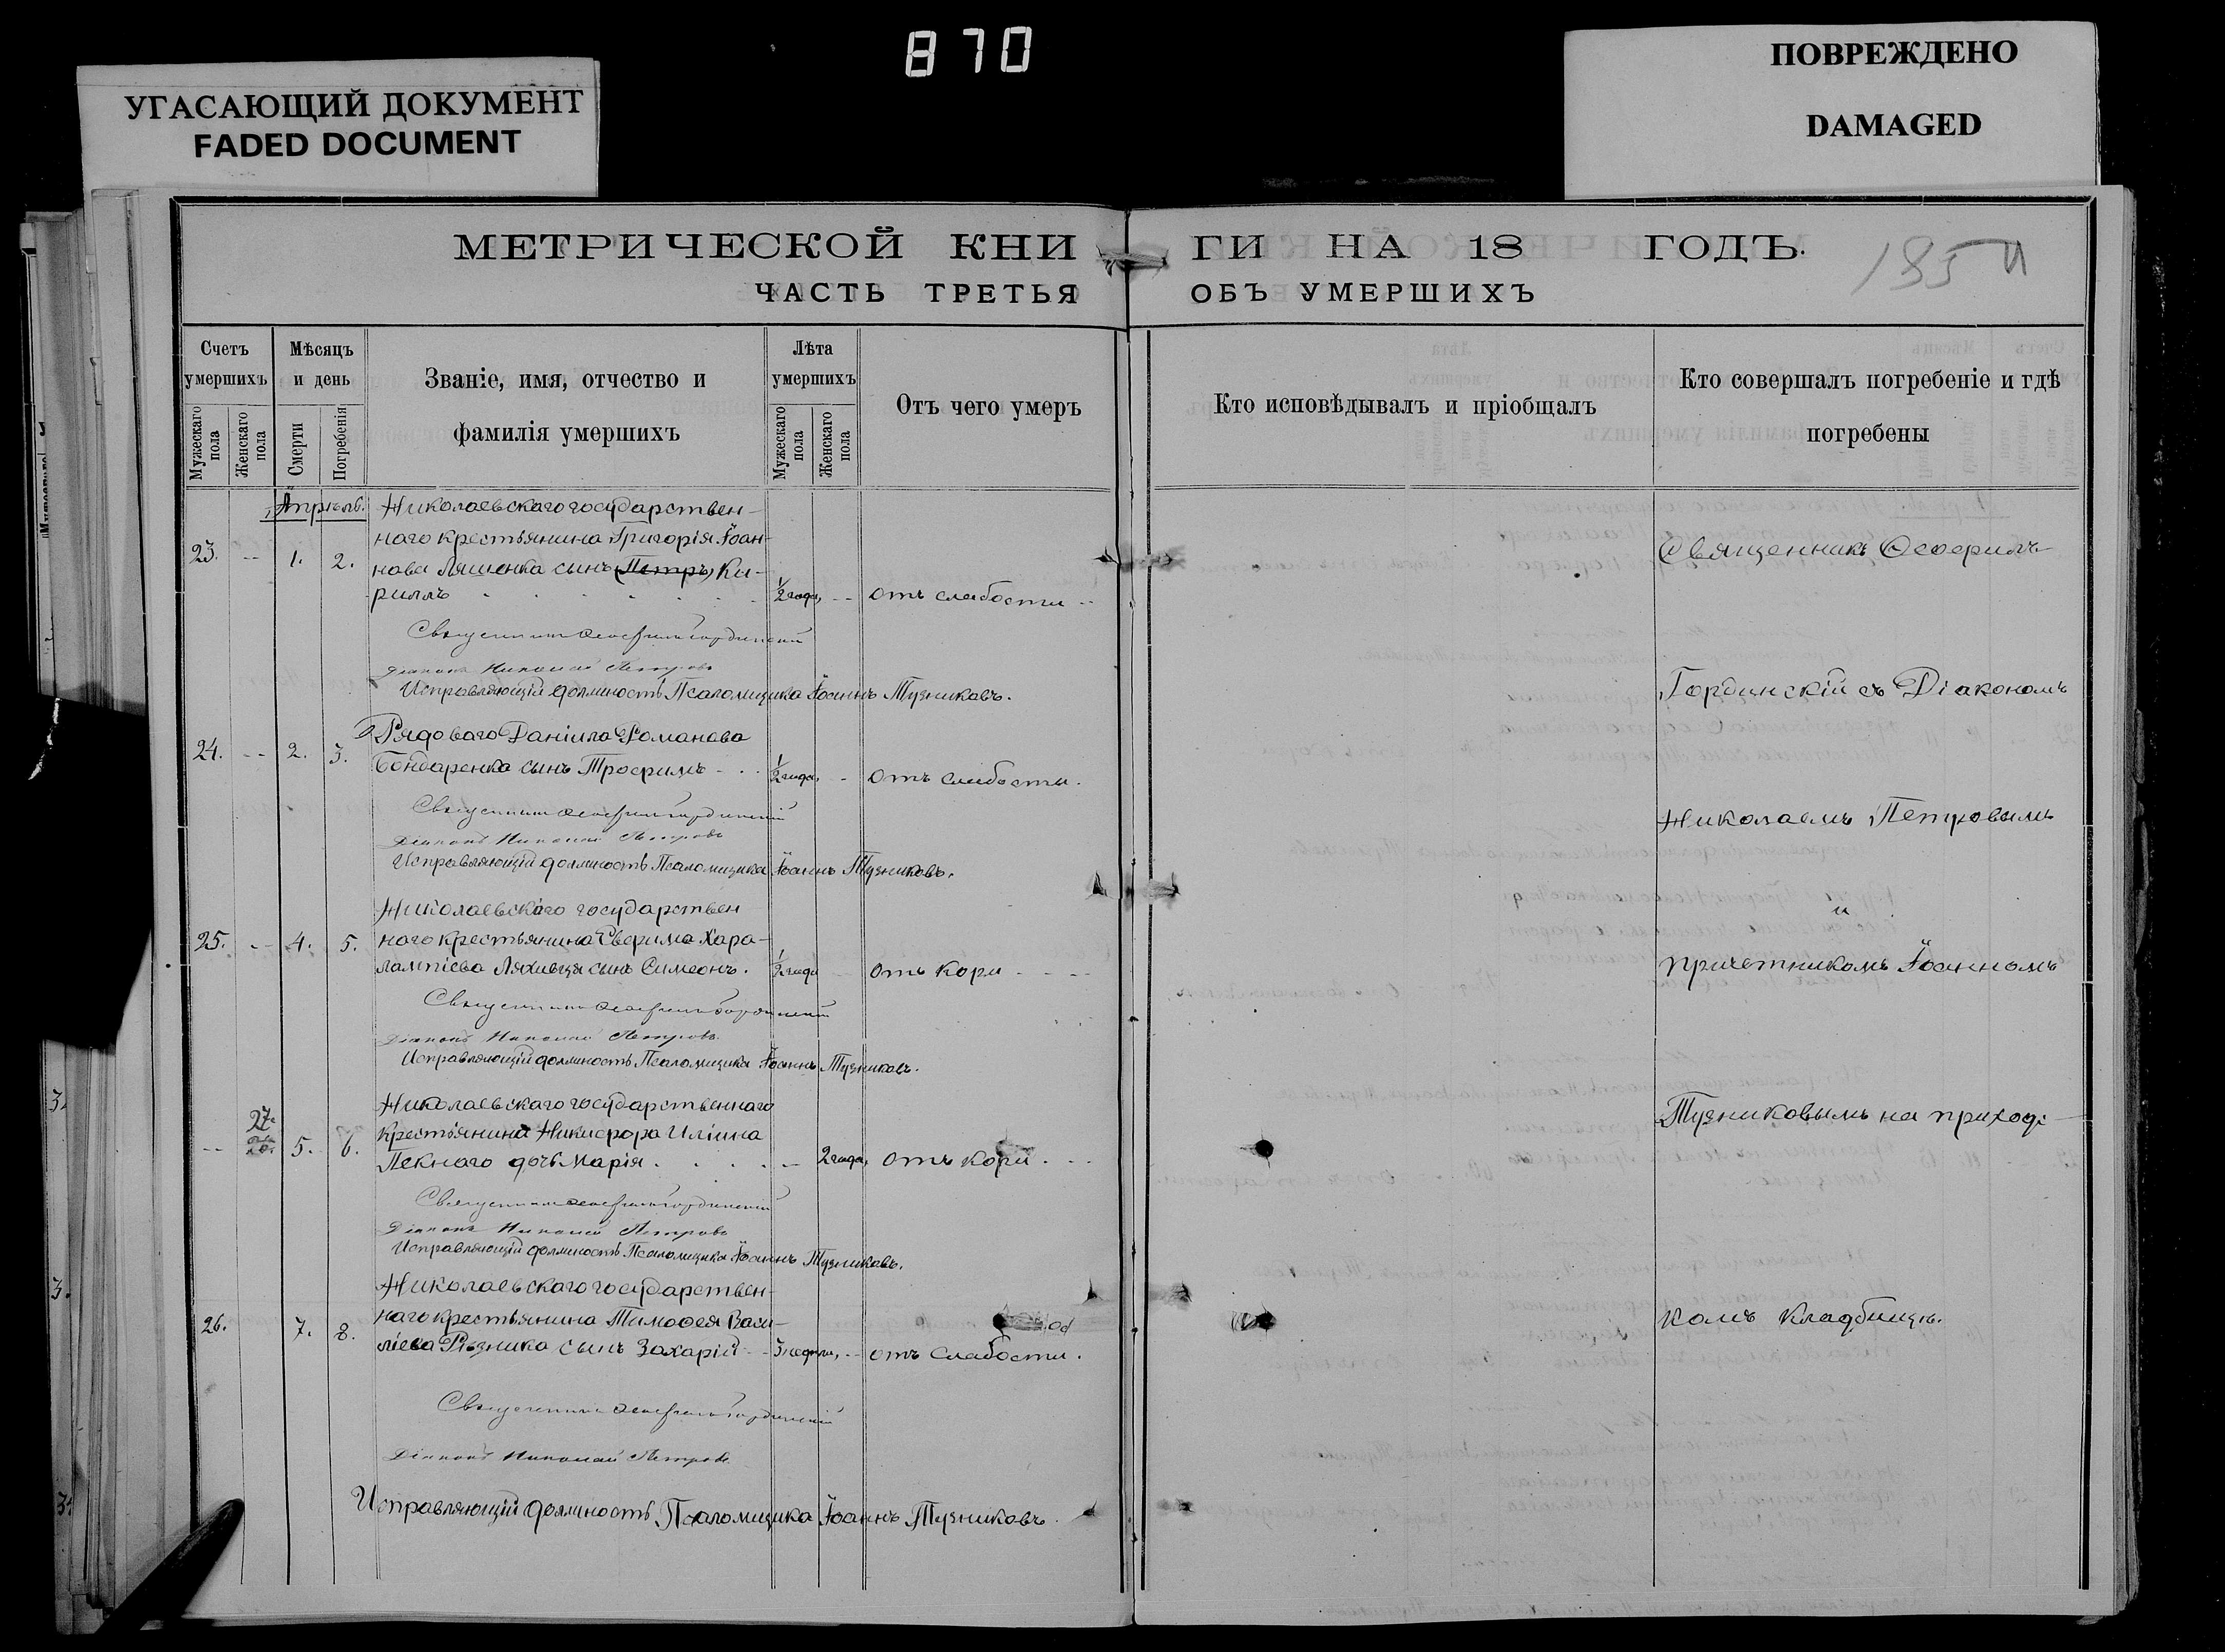 870
УГАСАЮЩИЙ ДОКУМЕНТ
FADED DOCUMENT
ПОВРЕЖДЕНО
DAMAGED
МЕТРИЧЕСКОЙ КНИ
ГИ НА 18 ГОДЪ.
ЧАСТЬ ТРЕТЬЯ
ОБЪ УМЕРШИХЪ
Счетъ умершихъ
Мужескаго пола
Женскаго пола
Мѣсяцъ и день
Смерти
Погребенія
Званіе, имя, отчество и
фамилія умершихъ
Лѣта умершихъ
Мужескаго пола
Женскаго пола
Отъ чего умеръ
Кто исповѣдывалъ и пріобщалъ
Кто совершалъ погребеніе и гдѣ
погребены
Апрѣль.
Николаевскаго государствен-
23. -- 1. 2. наго крестьянина Григорія Іоан-
нова Ляшенка сынъ (Петръ) Ки-
риллъ 1/2 года, -- отъ слабости --
Священникъ Ѳеофилъ Гординскій
Діаконъ Николай Петровъ
Исправляющій должность Псаломщика Іоаннъ Тузниковъ.
Рядоваго Даніила Романова
24. -- 2. 3. Бондаренка сынъ Трофимъ - 1/2 года, - отъ слабости.
Священникъ Ѳеофилъ Гординскій
Діаконъ Николай Петровъ
Исправляющій должность Псаломщика Іоаннъ Тузниковъ.
Николаевскаго государствен
25. -- 4. 5. наго крестьянина Ефима Хара-
лампіева сынъ Симеонъ. 1/2 года отъ кори
Священникъ Ѳеофилъ Гординскій
Діаконъ Николай Петровъ
Исправляющій должность Псаломщика Іоаннъ Тузниковъ.
Николаевскаго государственнаго
-- 27. 5. 6. крестьянина Никифора Иліина
Пекнаго дочь Марія. -- 2 года, отъ кори.
Священникъ Ѳеофилъ Гординскій
Діаконъ Николай Петровъ
Исправляющій должность Псаломщика Іоаннъ Тузниковъ.
Николаевскаго государствен-
26. 7. 8. наго крестьянина Тимоѳея Васи-
ліева Рѣзника сынъ Захарій -- 3 недѣли, -- отъ слабости.
Священникъ Ѳеофилъ Гординскій
Діаконъ Николай Петровъ
Исправляющій должность Псаломщика Іоаннъ Тузниковъ.
Священникъ Ѳеофилъ
Гординскій съ Діакономъ
Николаемъ Петровымъ
и
причетникомъ Іоанномъ
Тузниковымъ на приход-
комъ кладбищѣ.